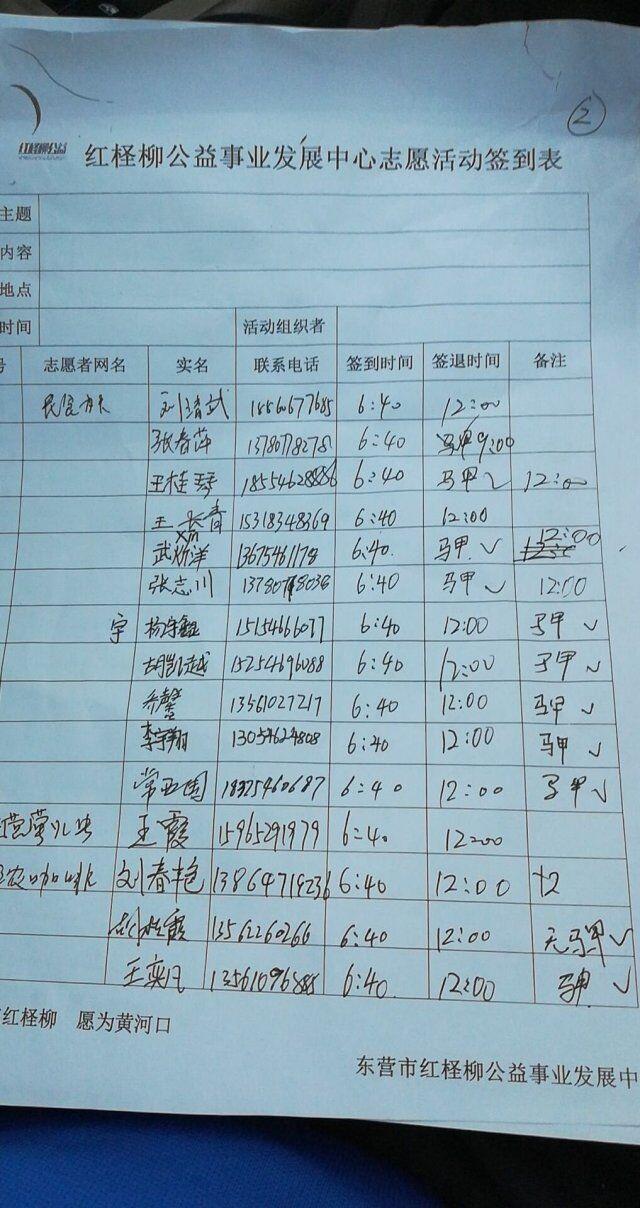 ②
红柽柳公益
红柽柳公益事业发展中心志愿活动签到表
主题
内容
地点
时间 活动组织者
号 志愿者网名 实名 联系电话 签到时间 签退时间 备注
刘清武 18560677685 6:40 12:00
张春萍 13780778278 6:40 马甲 9:00
王桂琴 6:40 马甲 ✓ 12:00
王 15318348369 6:40 12:00
武 洋 13675461178 6:40. 马甲 ✓ 12:00
张志川 6:40 马甲 ✓ 12:00
宇 杨 15154666077 6:40 12:00 马甲 ✓
胡凯越 15254696088 6:40 12:00 马甲 ✓
乔馨 13561027217 6:40 12:00 马甲 ✓
李宇翔 13054624808 6:40 12:00 马甲 ✓
常亚国 6:40 12:00 马甲 ✓
王霞 15965291979 6:40 12:00
刘春艳 13864719236 6:40 12:00 +2
霞 13562260266 6:40 12:00 无马甲 ✓
王奕凡 13561096885 6:40 12:00 马甲 ✓
红柽柳 愿为黄河口
东营市红柽柳公益事业发展中